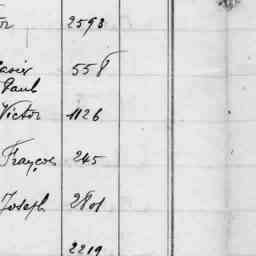 2593
558
Paul
Victor 1126
François 245
Joseph 2801
2219